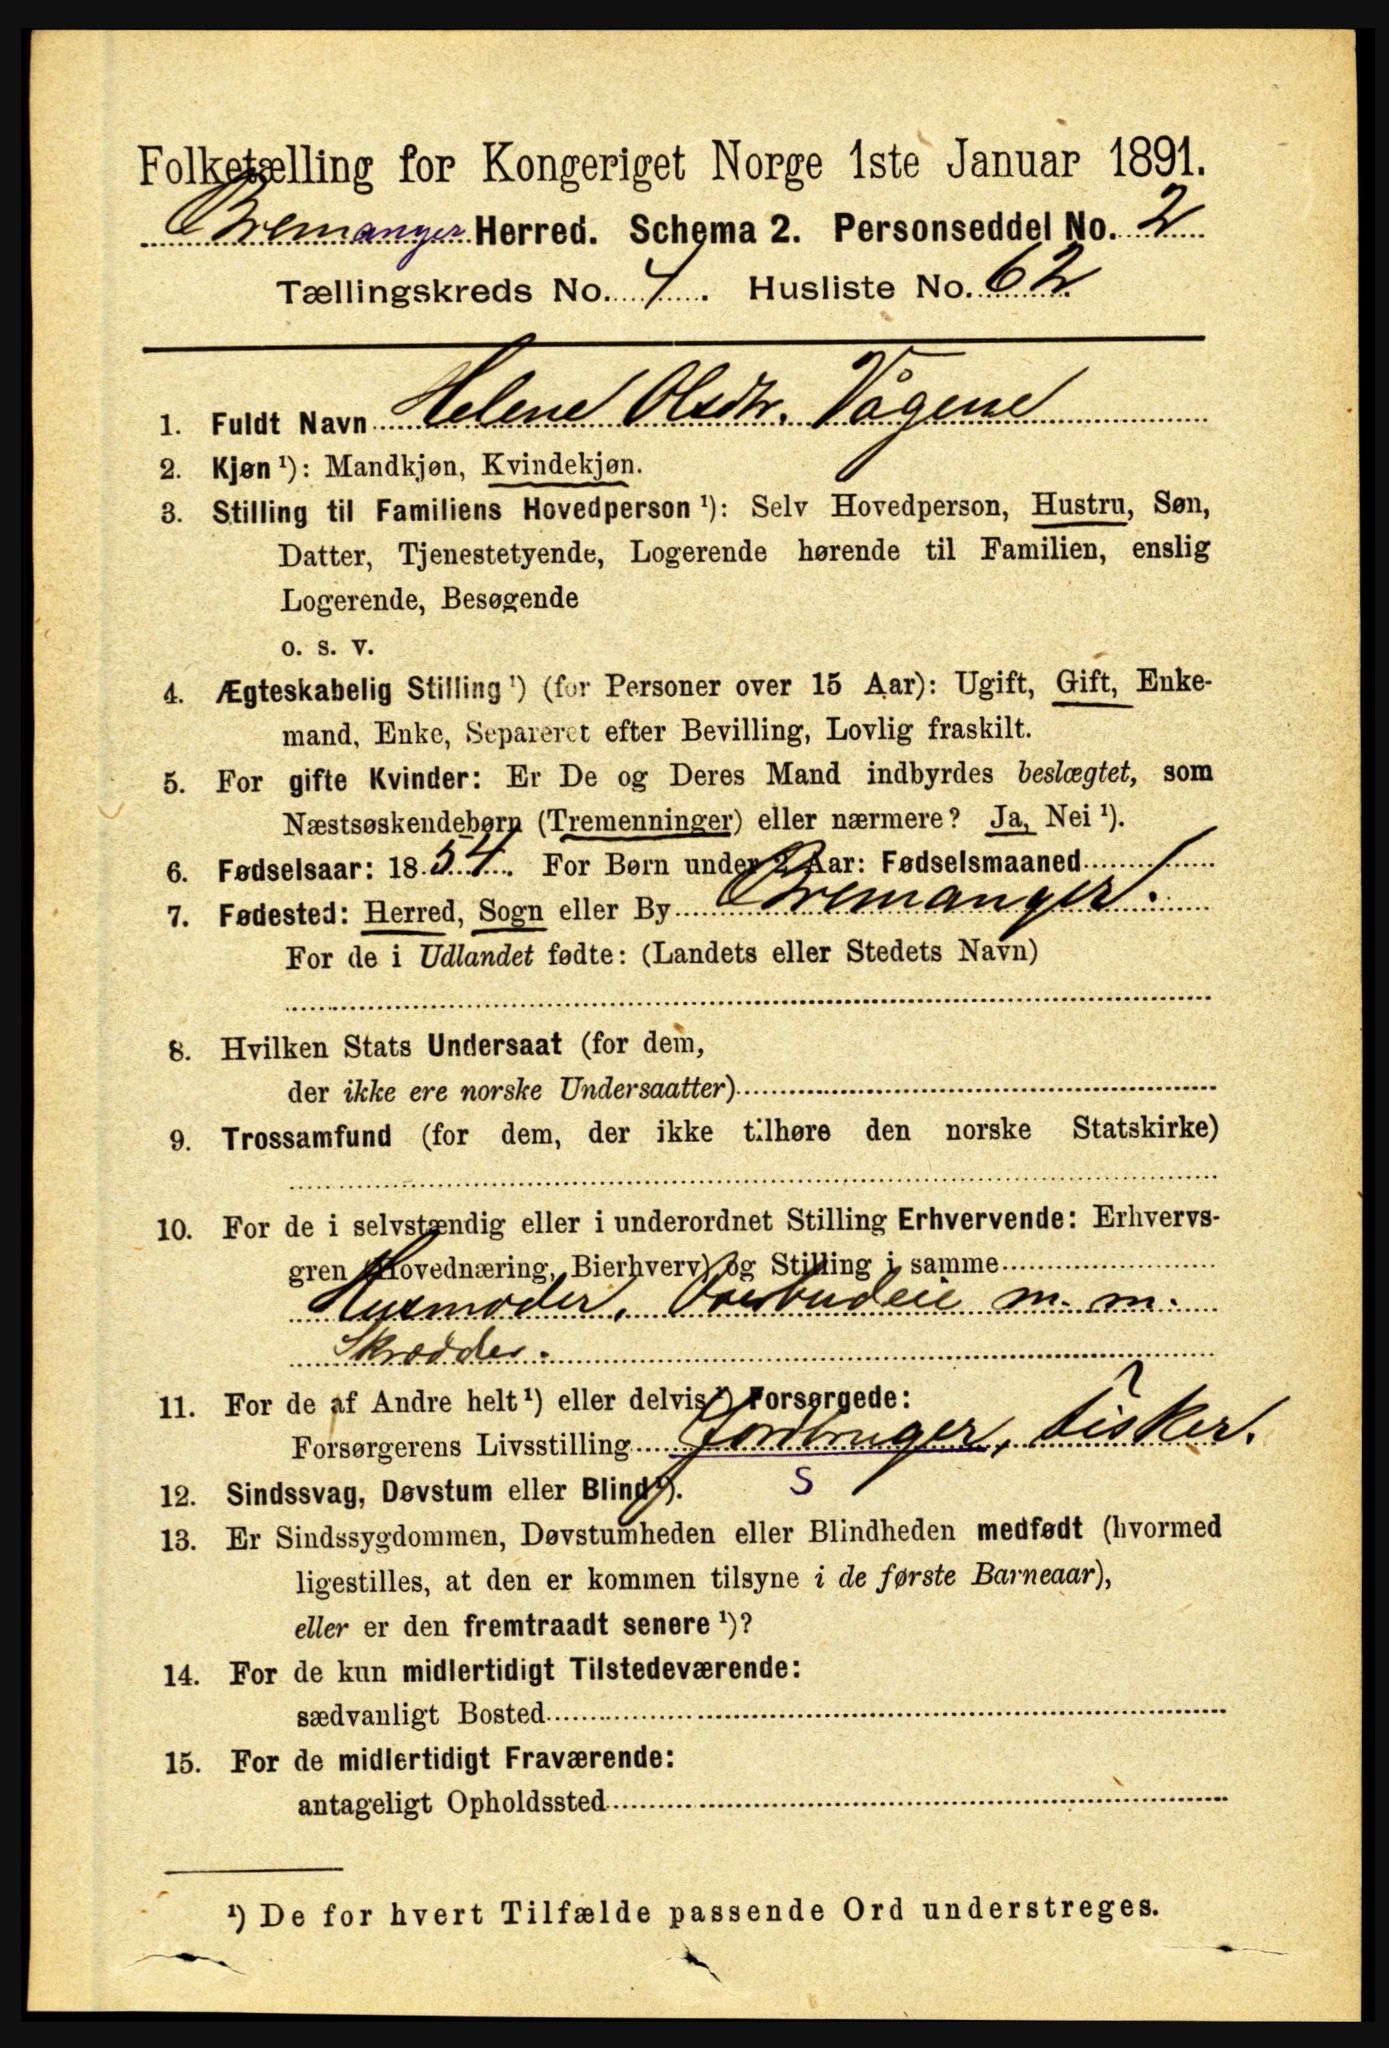 Folketælling for Kongeriget Norge 1ste Januar 1891.
Bremanger Herred. Schema 2. Personseddel No. 2
Tællingskreds No. 4. Husliste No. 62
1. Fuldt Navn Helene Olsdtr. Vågene
2. Kjøn ¹): Mandkjøn, Kvindekjøn.
3. Stilling til Familiens Hovedperson ¹): Selv Hovedperson, Hustru, Søn,
Datter, Tjenestetyende, Logerende hørende til Familien, enslig
Logerende, Besøgende
o. s. v.
4. Ægteskabelig Stilling ¹) (for Personer over 15 Aar): Ugift, Gift, Enke-
mand, Enke, Separeret efter Bevilling, Lovlig fraskilt.
5. For gifte Kvinder: Er De og Deres Mand indbyrdes beslægtet, som
Næstsøskendebørn (Tremenninger) eller nærmere? Ja, Nei ¹).
6. Fødselsaar: 1854. For Børn under 2 Aar: Fødselsmaaned
7. Fødested: Herred, Sogn eller By Bremanger.
For de i Udlandet fødte: (Landets eller Stedets Navn)
8. Hvilken Stats Undersaat (for dem,
der ikke ere norske Undersaatter)
9. Trossamfund (for dem, der ikke tilhøre den norske Statskirke)
10. For de i selvstændig eller i underordnet Stilling Erhvervende: Erhvervs-
gren (Hovednæring, Bierhverv) og Stilling i samme
Husmoder, m. m.
Skrædder.
11. For de af Andre helt ¹) eller delvis ¹) Forsørgede:
Forsørgerens Livsstilling Jordbruger, Fisker.
S
12. Sindssvag, Døvstum eller Blind ¹).
13. Er Sindssygdommen, Døvstumheden eller Blindheden medfødt (hvormed
ligestilles, at den er kommen tilsyne i de første Barneaar),
eller er den fremtraadt senere ¹)?
14. For de kun midlertidigt Tilstedeværende:
sædvanligt Bosted
15. For de midlertidigt Fraværende:
antageligt Opholdssted
¹) De for hvert Tilfælde passende Ord understreges.